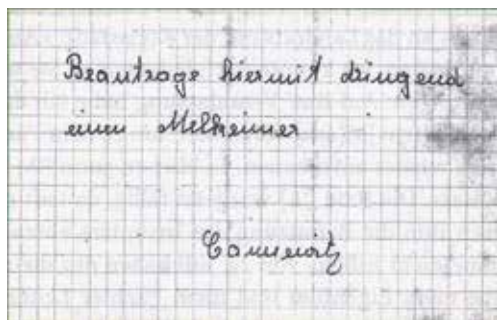 Beantrage hiermit dringend
einen Melkeimer